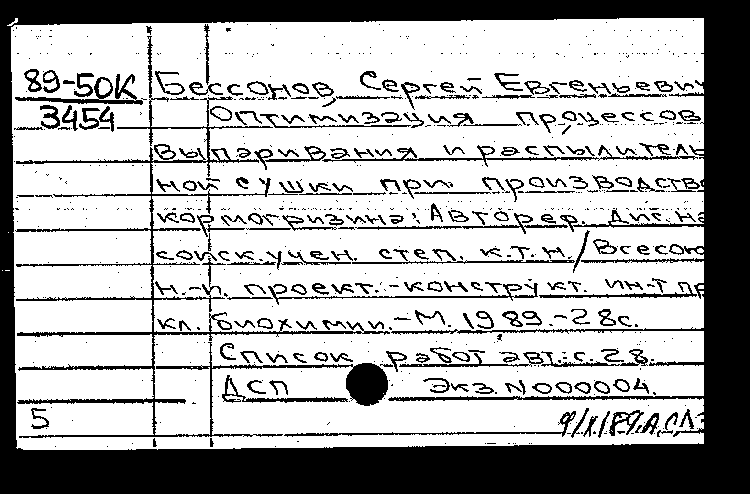 89-50К Бессонов, Сергей Евгеньевич
3454 Оптимизация процессов
выпаривания и распылитель
ной сушки при производстве
кормогризина: Автореф. дис. на
соиск. учен. степ. к.т.н. / Всесою
н.-и. проект.-конструкт. ин-т пр
кл. биохимии. - М. 1989. - 28с.
Список работ авт.: с. 28.
ДСП Экз. N 000004.
5